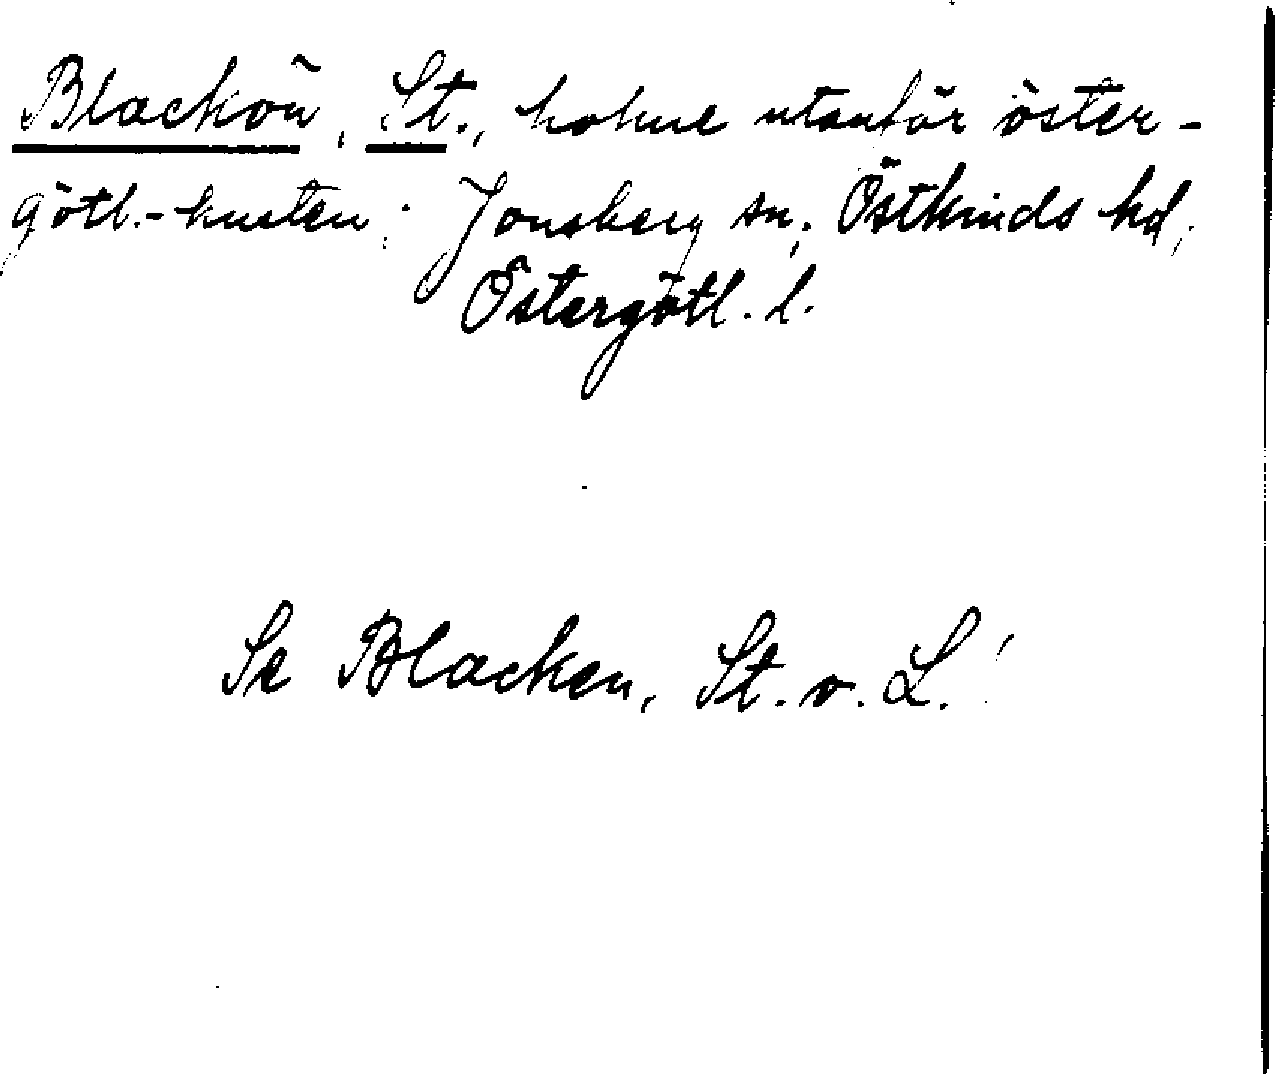 Blackön, St., holme utanför öster-
götl.-kusten; Jonsberg sn; Östkinds hd,
Östergötl. l.
Se Blacken, St. o. L.!